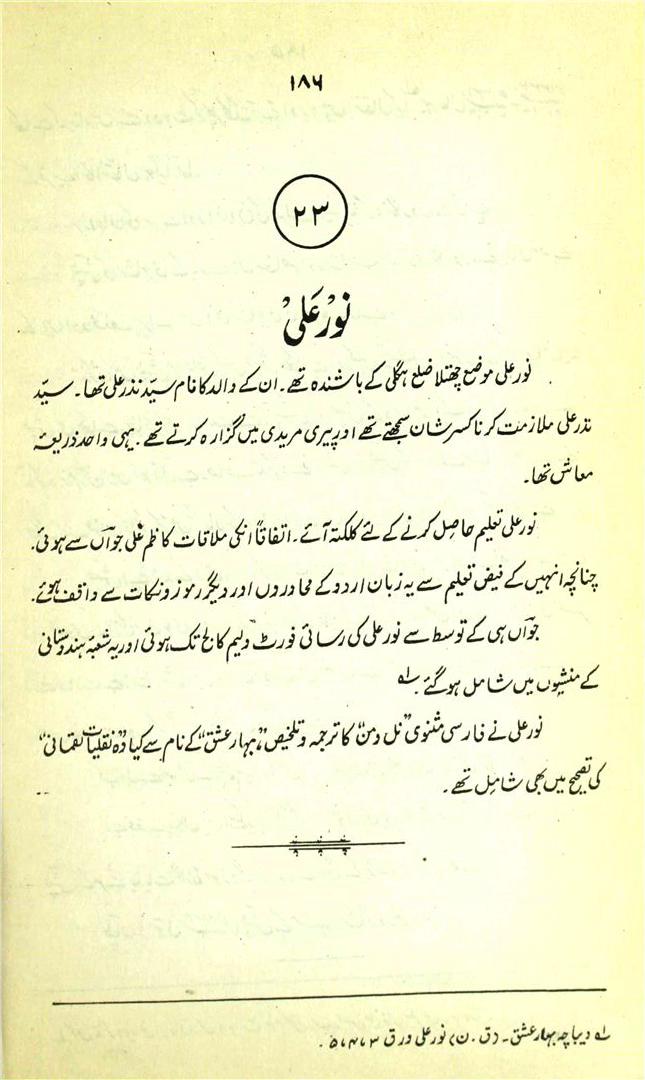 ۱۸۶
۲۳
نورْ عَلیْ
نور علی موضع چھتلا ضلع ہگلی کے باشندہ تھے۔ ان کے والد کا نام سیّد نذر علی تھا۔ سیّد
نذر علی ملازمت کرنا کسرِ شان سمجھتے تھے اور پیری مریدی میں گزارہ کرتے تھے۔ یہی واحد ذریعۂ
معاش تھا۔
نور علی تعلیم حاصل کرنے کے لئے کلکتہ آئے۔ اتفاقاً انکی ملاقات کاظم علی جواںؔ سے ہوئی۔
چنانچہ انہیں کے فیض تعلیم سے یہ زبان اردو کے محاوروں اور دیگر رموز و نکات سے واقف ہوئے۔
جواںؔ ہی کے توسط سے نور علی کی رسائی فورٹ ولیم کالج تک ہوئی اور یہ شعبۂ ہندوستانی
کے منشیوں میں شامل ہو گئے۔ ؎۱
نور علی نے فارسی مثنوی ”نل دمن“ کا ترجمہ و تلخیص ”بہار عشق“ کے نام سے کیا وہ ”نقلیات لقمانی“
کی تصحیح میں بھی شامل تھے۔
؎۱ دیباچہ بہار عشق۔ (ق۔ن) نور علی ورق ۳، ۴، ۵۔